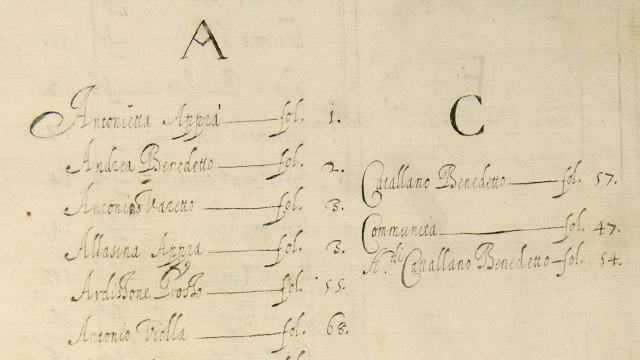 A
Antonietta Appia fol. 1.
Andrea Benedetto fol. 2.
Antonio Varetto fol. 3.
Allasina Appia fol. 3.
Ardissone fol. 55.
Antonio Violla fol. 68.
C
Cavallano Benedetto fol. 57.
Communità fol. 47.
Cavallano Benedetto fol. 54.